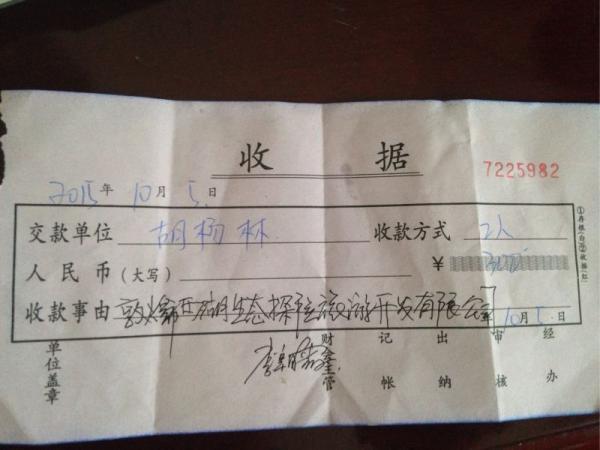 收 据
7225982
2015年 10月 5日
交款单位 胡杨林 收款方式 2人
人民币(大写) ¥
收款事由 敦煌西湖生态探险旅游开发有限公司
10月5日
单位盖章 财 管 记帐 出纳 审核 经办